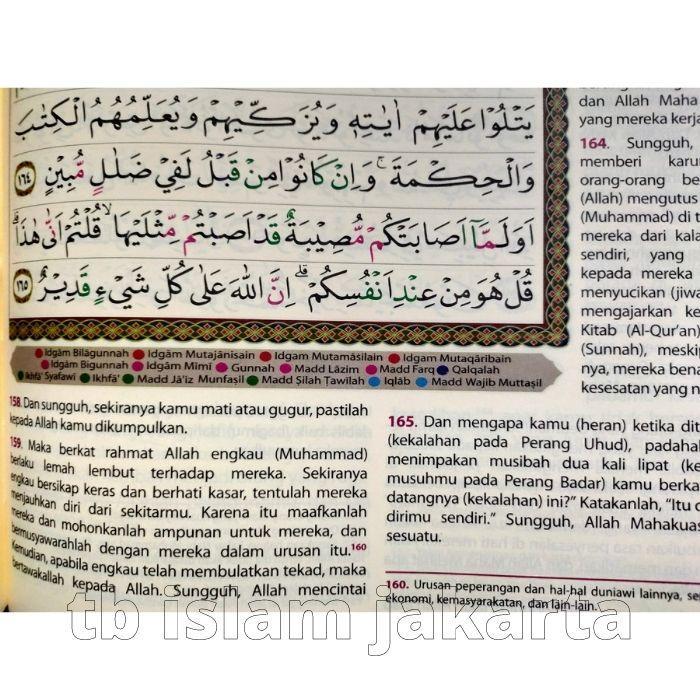 يَتْلُوْا عَلَيْهِمْ اٰيٰتِهٖ وَيُزَكِّيْهِمْ وَيُعَلِّمُهُمُ الْكِتٰبَ
وَالْحِكْمَةَۚ وَاِنْ كَانُوْا مِنْ قَبْلُ لَفِيْ ضَلٰلٍ مُّبِيْنٍ ١٦٤
اَوَلَمَّآ اَصَابَتْكُمْ مُّصِيْبَةٌ قَدْ اَصَبْتُمْ مِّثْلَيْهَاۙ قُلْتُمْ اَنّٰى هٰذَاۗ
قُلْ هُوَ مِنْ عِنْدِ اَنْفُسِكُمْۗ اِنَّ اللّٰهَ عَلٰى كُلِّ شَيْءٍ قَدِيْرٌ ١٦٥
Idgām Bilāgunnah Idgam Mutajānisain Idgam Mutamāsilain Idgam Mutaqāribain
Idgām Bigunnah Idgām Mimī Gunnah Madd Lāzim Madd Farq Qalqalah
Ikhfā' Syafawī Ikhfā' Madd Jā'iz Munfaṣil Madd Ṣilah Ṭawīlah Iqlāb Madd Wajib Muttaṣil
158. Dan sungguh, sekiranya kamu mati atau gugur, pastilah
kepada Allah kamu dikumpulkan.
159. Maka berkat rahmat Allah engkau (Muhammad)
berlaku lemah lembut terhadap mereka. Sekiranya
engkau bersikap keras dan berhati kasar, tentulah mereka
menjauhkan diri dari sekitarmu. Karena itu maafkanlah
mereka dan mohonkanlah ampunan untuk mereka, dan
bermusyawarahlah dengan mereka dalam urusan itu.160
Kemudian, apabila engkau telah membulatkan tekad, maka
bertawakallah kepada Allah. Sungguh, Allah mencintai
dan Allah Maha
yang mereka kerja
164. Sungguh,
memberi karu
orang-orang be
(Allah) mengutus
(Muhammad) di t
mereka dari kala
sendiri, yang
kepada mereka
menyucikan (jiwa
mengajarkan ke
Kitab (Al-Qur'an)
(Sunnah), meski
nya, mereka bena
kesesatan yang n
165. Dan mengapa kamu (heran) ketika dit
(kekalahan pada Perang Uhud), padaha
menimpakan musibah dua kali lipat (ke
musuhmu pada Perang Badar) kamu berka
datangnya (kekalahan) ini?" Katakanlah, "Itu d
dirimu sendiri." Sungguh, Allah Mahakuas
sesuatu.
160. Urusan peperangan dan hal-hal duniawi lainnya, sep
ekonomi, kemasyarakatan, dan lain-lain.
tb islam jakarta